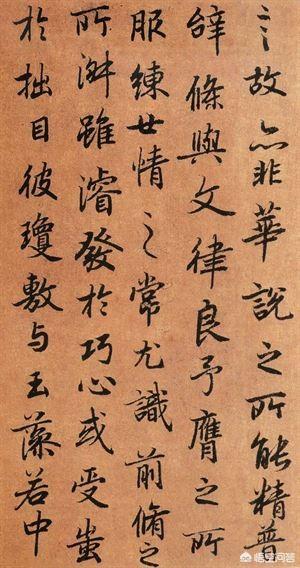 言故亦非華說之所能精普
辭條與文律良予膺之所
服練世情之常尤識前脩之
所淑雖濬發於巧心或受蚩
於拙目彼瓊敷与玉藻若中
悟空问答